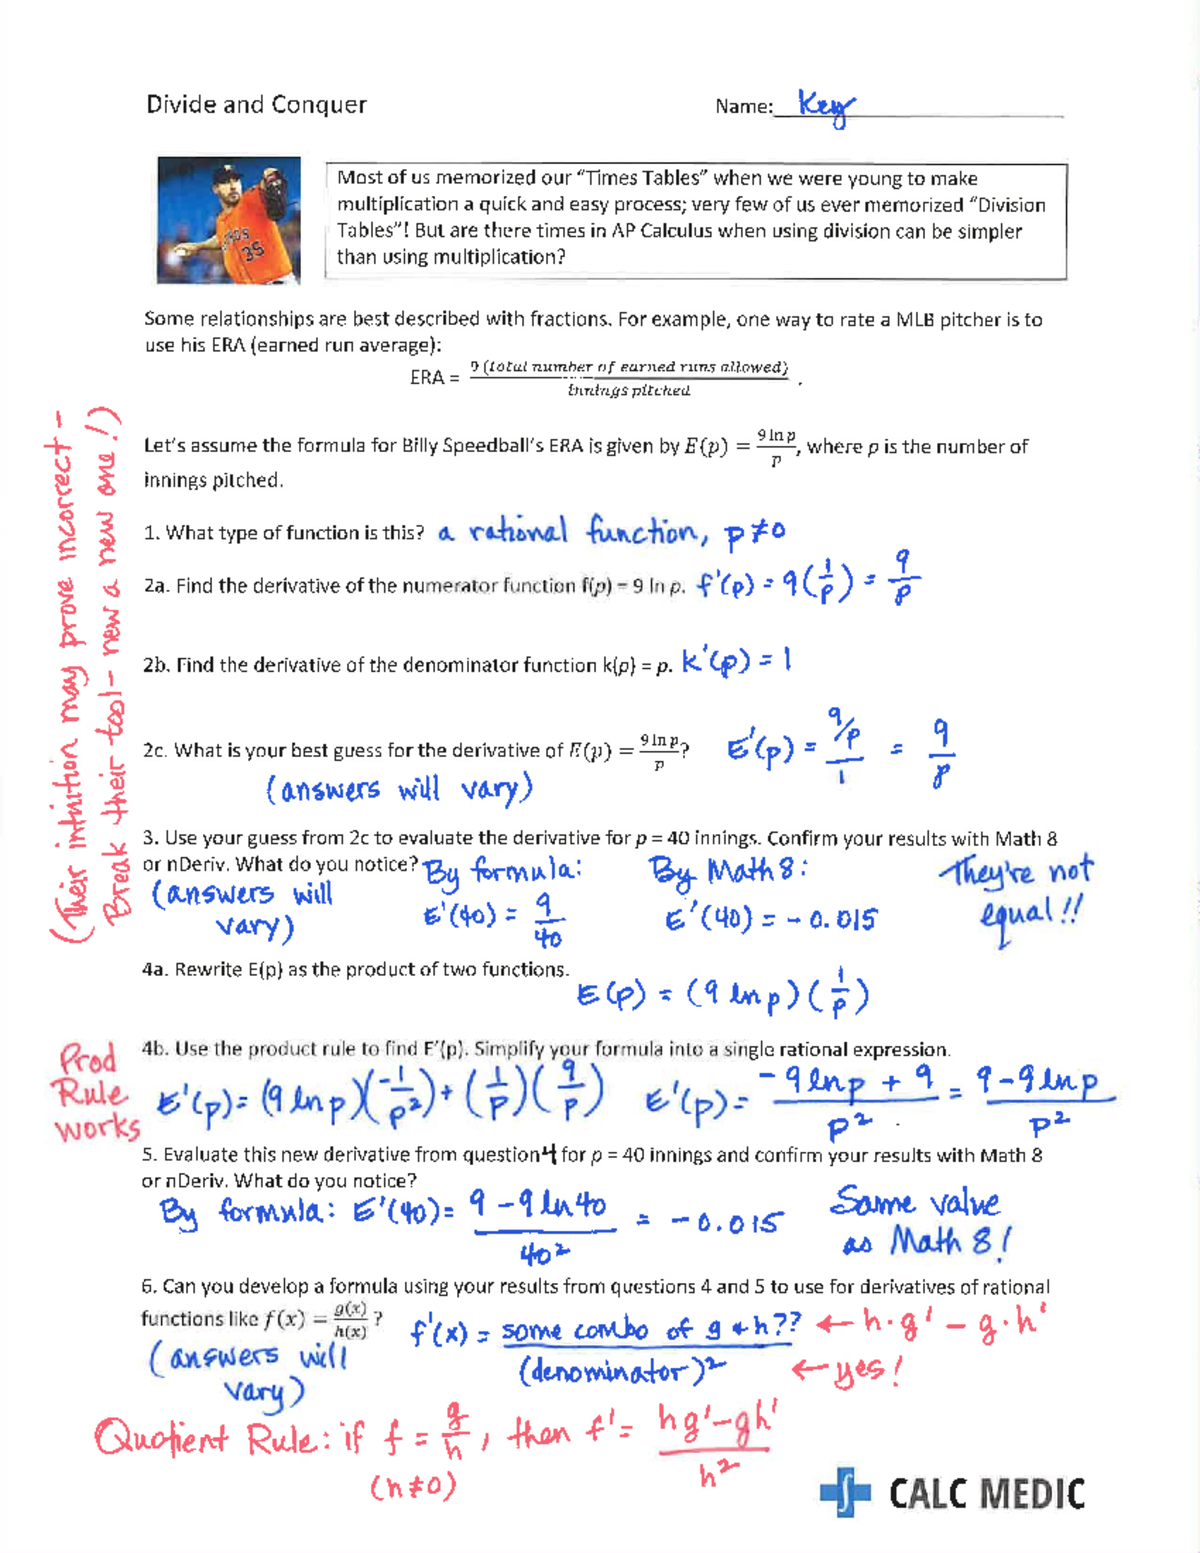 Divide and Conquer
Name: Key
Most of us memorized our “Times Tables” when we were young to make
multiplication a quick and easy process; very few of us ever memorized “Division
Tables”! But are there times in AP Calculus when using division can be simpler
than using multiplication?
35
Some relationships are best described with fractions. For example, one way to rate a MLB pitcher is to
use his ERA (earned run average):
ERA = 9 (total number of earned runs allowed) / innings pitched .
Let’s assume the formula for Billy Speedball’s ERA is given by E(p) = 9 ln p / p, where p is the number of
innings pitched.
(Their intuition may prove incorrect –
Break their tool – new a new one!)
1. What type of function is this? a rational function, p ≠ 0
2a. Find the derivative of the numerator function f(p) = 9 ln p. f'(p) = 9(1/p) = 9/p
2b. Find the derivative of the denominator function k(p) = p. k'(p) = 1
2c. What is your best guess for the derivative of E(p) = 9 ln p / p? E'(p) = 9/p / 1 = 9/p
(answers will vary)
3. Use your guess from 2c to evaluate the derivative for p = 40 innings. Confirm your results with Math 8
or nDeriv. What do you notice? By formula: By Math 8: They're not
(answers will E'(40) = 9/40 E'(40) = -0.015 equal!!
vary)
4a. Rewrite E(p) as the product of two functions.
E(p) = (9 ln p)(1/p)
4b. Use the product rule to find E’(p). Simplify your formula into a single rational expression.
Prod
Rule
works
E'(p) = (9 ln p)(-1/p²) + (1/p)(9/p) E'(p) = -9 ln p + 9 / p² = 9 - 9 ln p / p²
5. Evaluate this new derivative from question 4 for p = 40 innings and confirm your results with Math 8
or nDeriv. What do you notice?
By formula: E'(40) = 9 - 9 ln 40 / 40² = -0.015 Same value
as Math 8!
6. Can you develop a formula using your results from questions 4 and 5 to use for derivatives of rational
functions like f(x) = g(x)/h(x) ? f'(x) = some combo of g & h?? ← h·g' - g·h'
(answers will (denominator)² ← yes!
vary)
Quotient Rule: if f = g/h, then f' = hg'-gh' / h²
(h ≠ 0)
CALC MEDIC